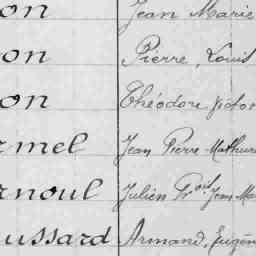 on Jean Marie
on Pierre, Louis
on Théodore Victor
rmel Jean Pierre Mathur
rnoul Julien Frois Jean Ma
ussard Armand, Eugèn